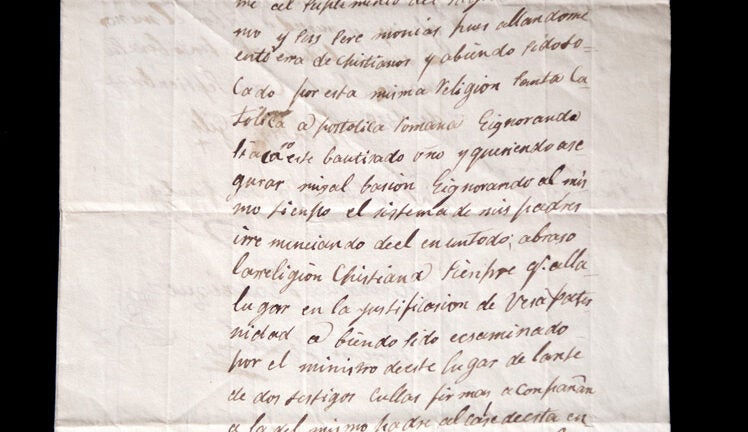 me el suplemento del sag
mo y sus sere monias pues allandome
ento erra de christianos y abiendo sido to-
cado por esta misma Religion santa Ca-
tolica apostolica romana Eignorando
este bautisado ono y queriendo ase
gurar mi sal basion Eignorando al mis
mo tiempo el sistema de mis padres
irre nunciando deel en untodo; abraso
la rreligion christiana siempre q.e alla-
lugar en la justificasion de Vesa pater
nidad a biendo sido ecsaminado
por el ministro deeste lugar de lante
de dos testigos cullas firmas acompañan
a la del mismo padre al case decsta en